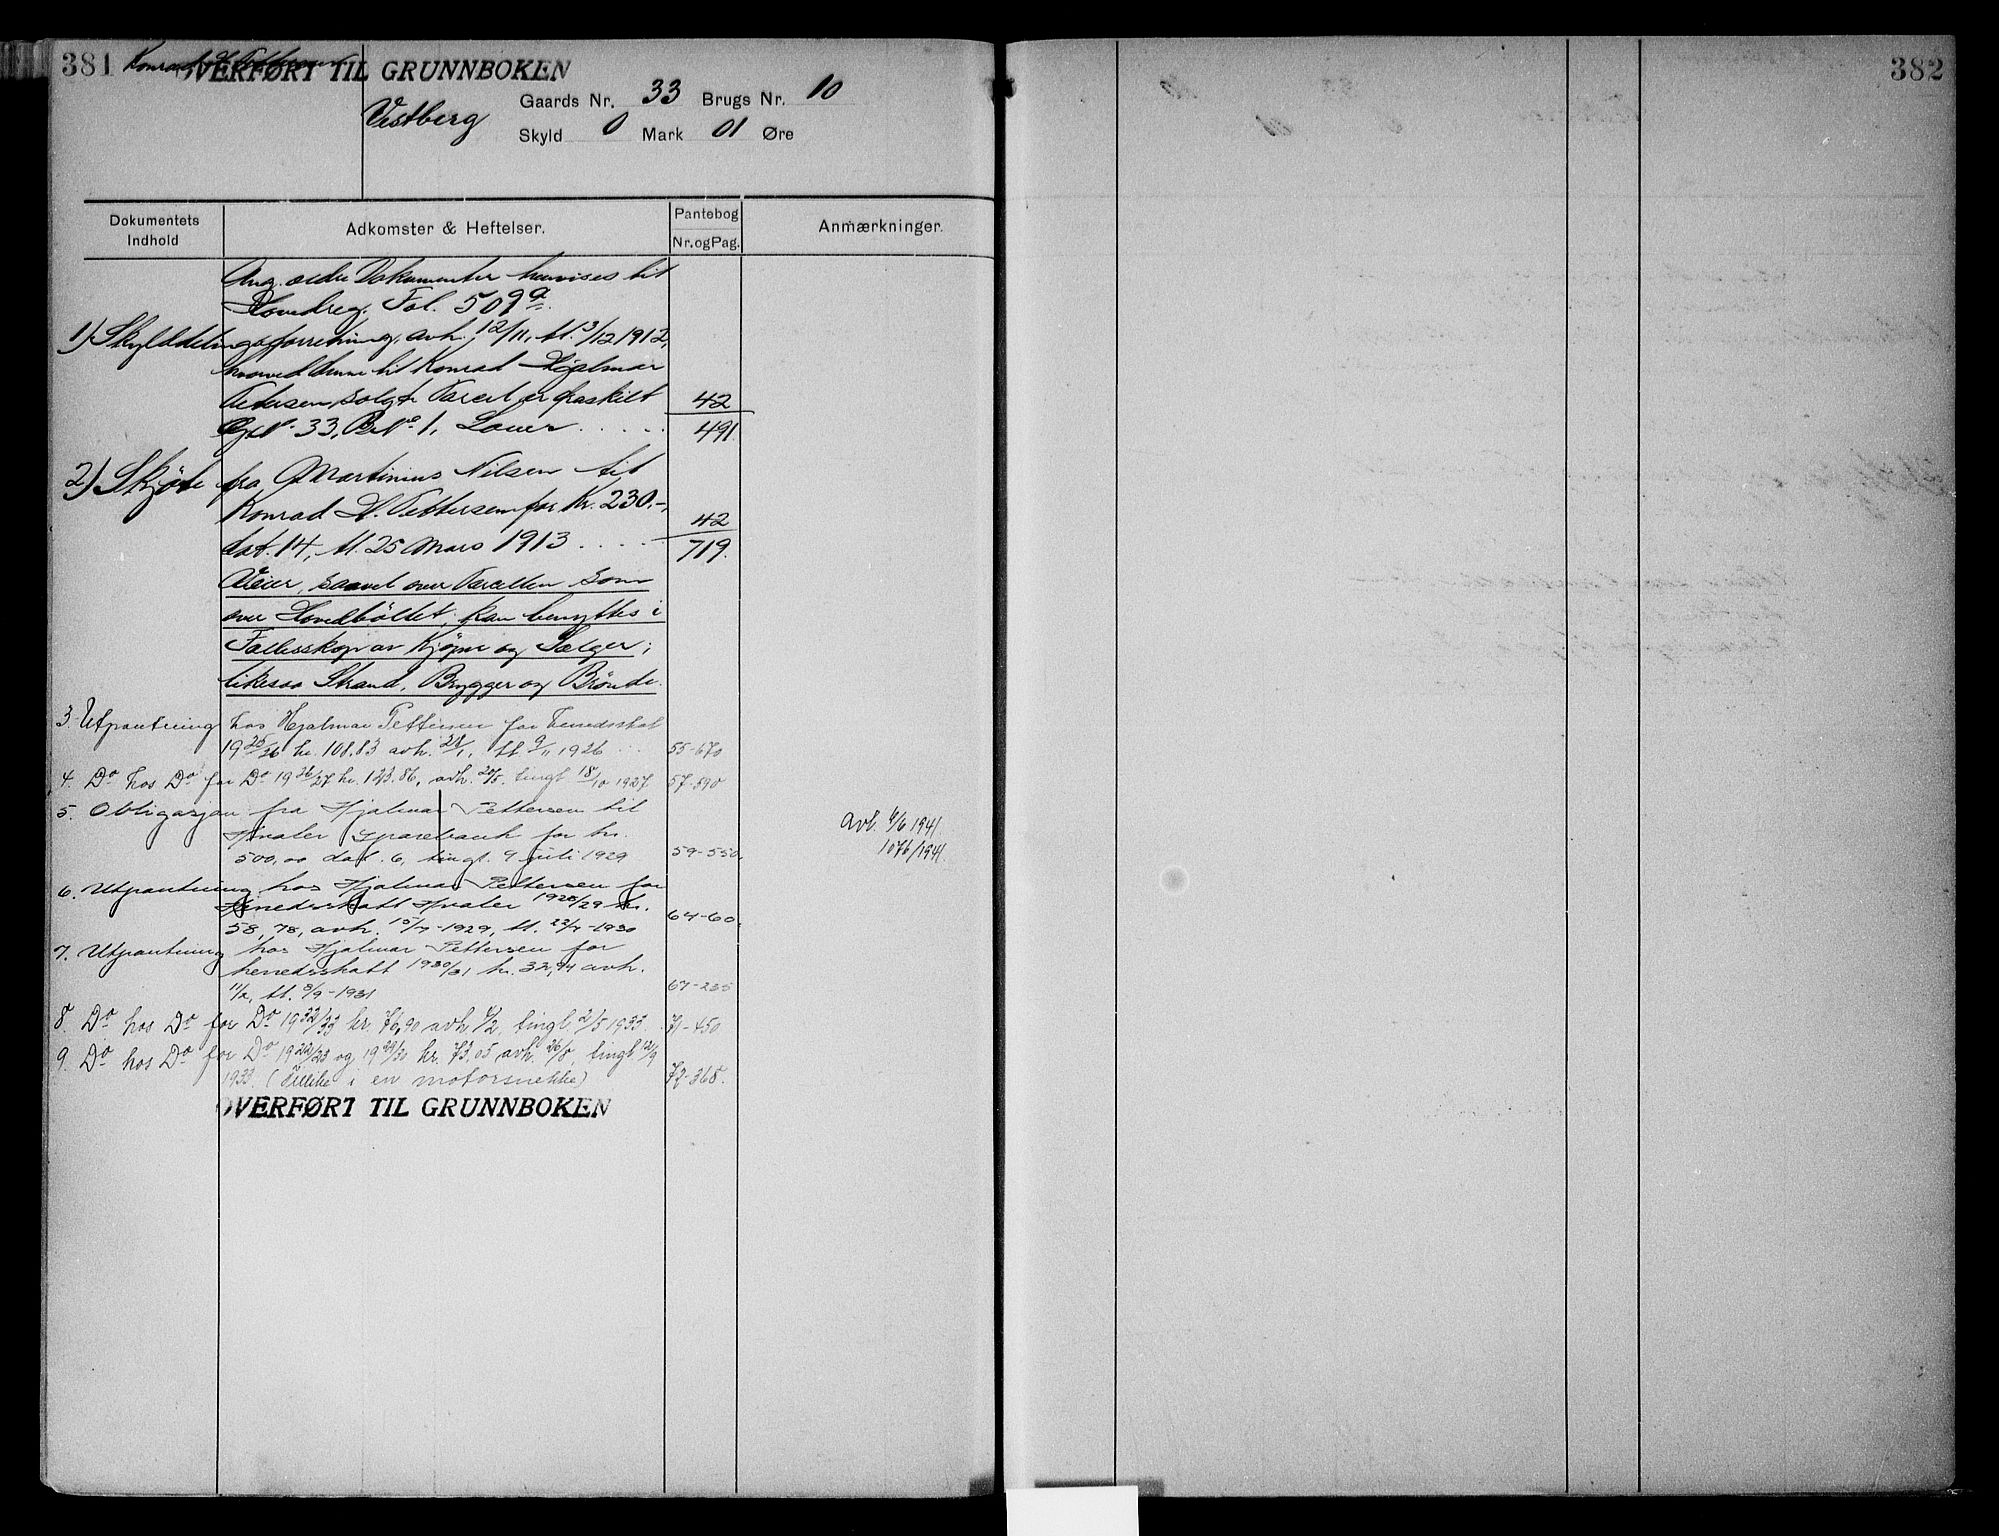 381 Konrad H. Pettersen
OVERFØRT TIL GRUNNBOKEN
Vestberg
Gaards Nr. 33 Brugs Nr. 10
Skyld 0 Mark 01 Øre
Dokumentets Indhold
Adkomster & Heftelser.
Pantebog Nr. og Pag.
Anmærkninger.
Ang. ældre Dokumenter henvises til
Hovedreg. Fol. 509a.
1) Skylddelingsforretning, avh. 12/11, tl. 3/12 1912,
hvorved denne til Konrad Hjalmar
Petersen solgte Parcel er fraskilt
GNo 33, BNo 1, Lauer . . . . 42/491.
2) Skjøte fra Martinius Nilsen til
Konrad H. Pettersen for Kr. 230.-,
dat. 14, tl. 25 Mars 1913 . . . . 42/719.
Veier, saavel over Parcellen som
over Hovedbøllet, kan benyttes i
Fællesskap av Kjøper og Sælger;
likesaa Strand, Brygger og Brønde.
3. Utpantning hos Hjalmar Pettersen for herredsskat
1925/26 kr. 108.83 avh. 28/1, tl. 9/11 1926 . . . 55-670
4. Do hos Do for Do 1926/27 kr. 123.86, avh. 20/5. tingl 18/10 1927 57-590
5. Obligasjon fra Hjalmar Pettersen til
Hvaler Sparebank for kr.
500,00 dat. 6, tingl. 9 juli 1929 59-550.
Avl. 4/6 1941.
1076/1941.
6. Utpantning hos Hjalmar Pettersen for
herredsskatt Hvaler 1928/29 kr.
58,78, avh. 15/7-1929, tl. 22/7-1930 64-60.
7. Utpantning hos Hjalmar Pettersen for
herredsskatt 1930/31 kr. 32,94 avh.
11/2, tl. 8/9-1931 67-235
8. Do hos Do for Do 1932/33 kr. 76,90 avh 9/2, tingl. 2/5 1933. 71-450
9. Do hos Do for Do 1922/23 og 1929/30 kr. 73.05 avh. 26/8 tingl 12/9
1933. (Tillike i en motorsnekke) 72-368.
OVERFØRT TIL GRUNNBOKEN
382